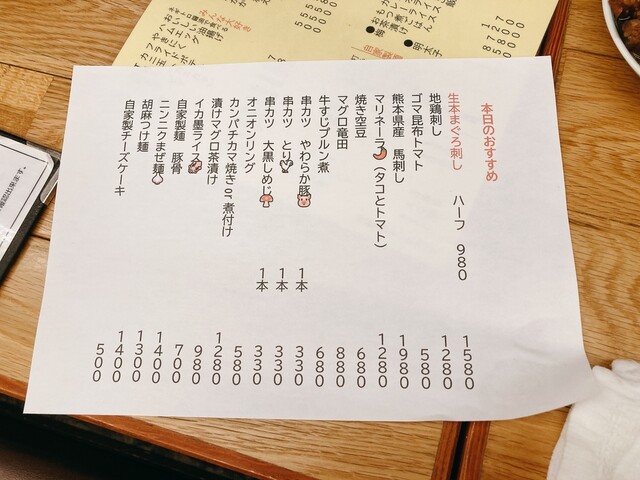 本日のおすすめ
生本まぐろ刺し ハーフ 980 1580
地鶏刺し 1280
ゴマ昆布トマト 580
熊本県産 馬刺し 1980
マリネーラ (タコとトマト) 1280
焼き空豆 680
マグロ竜田 880
牛すじプルン煮 680
串カツ やわらか豚 1本 330
串カツ とり 1本 330
串カツ 大黒しめじ 1本 330
オニオンリング 580
カンパチカマ焼き or 煮付け 1280
漬けマグロ茶漬け 980
イカ墨ライス 700
自家製麺 豚骨 1400
ニンニクまぜ麺 1300
胡麻つけ麺 1400
自家製チーズケーキ 500
カレーライス
もつ煮ごはん
お茶漬け
●梅 ●明太子
自家製
みんな大好き
おいしい油揚げ
ハムエッグ
やきにく
フライドポテ